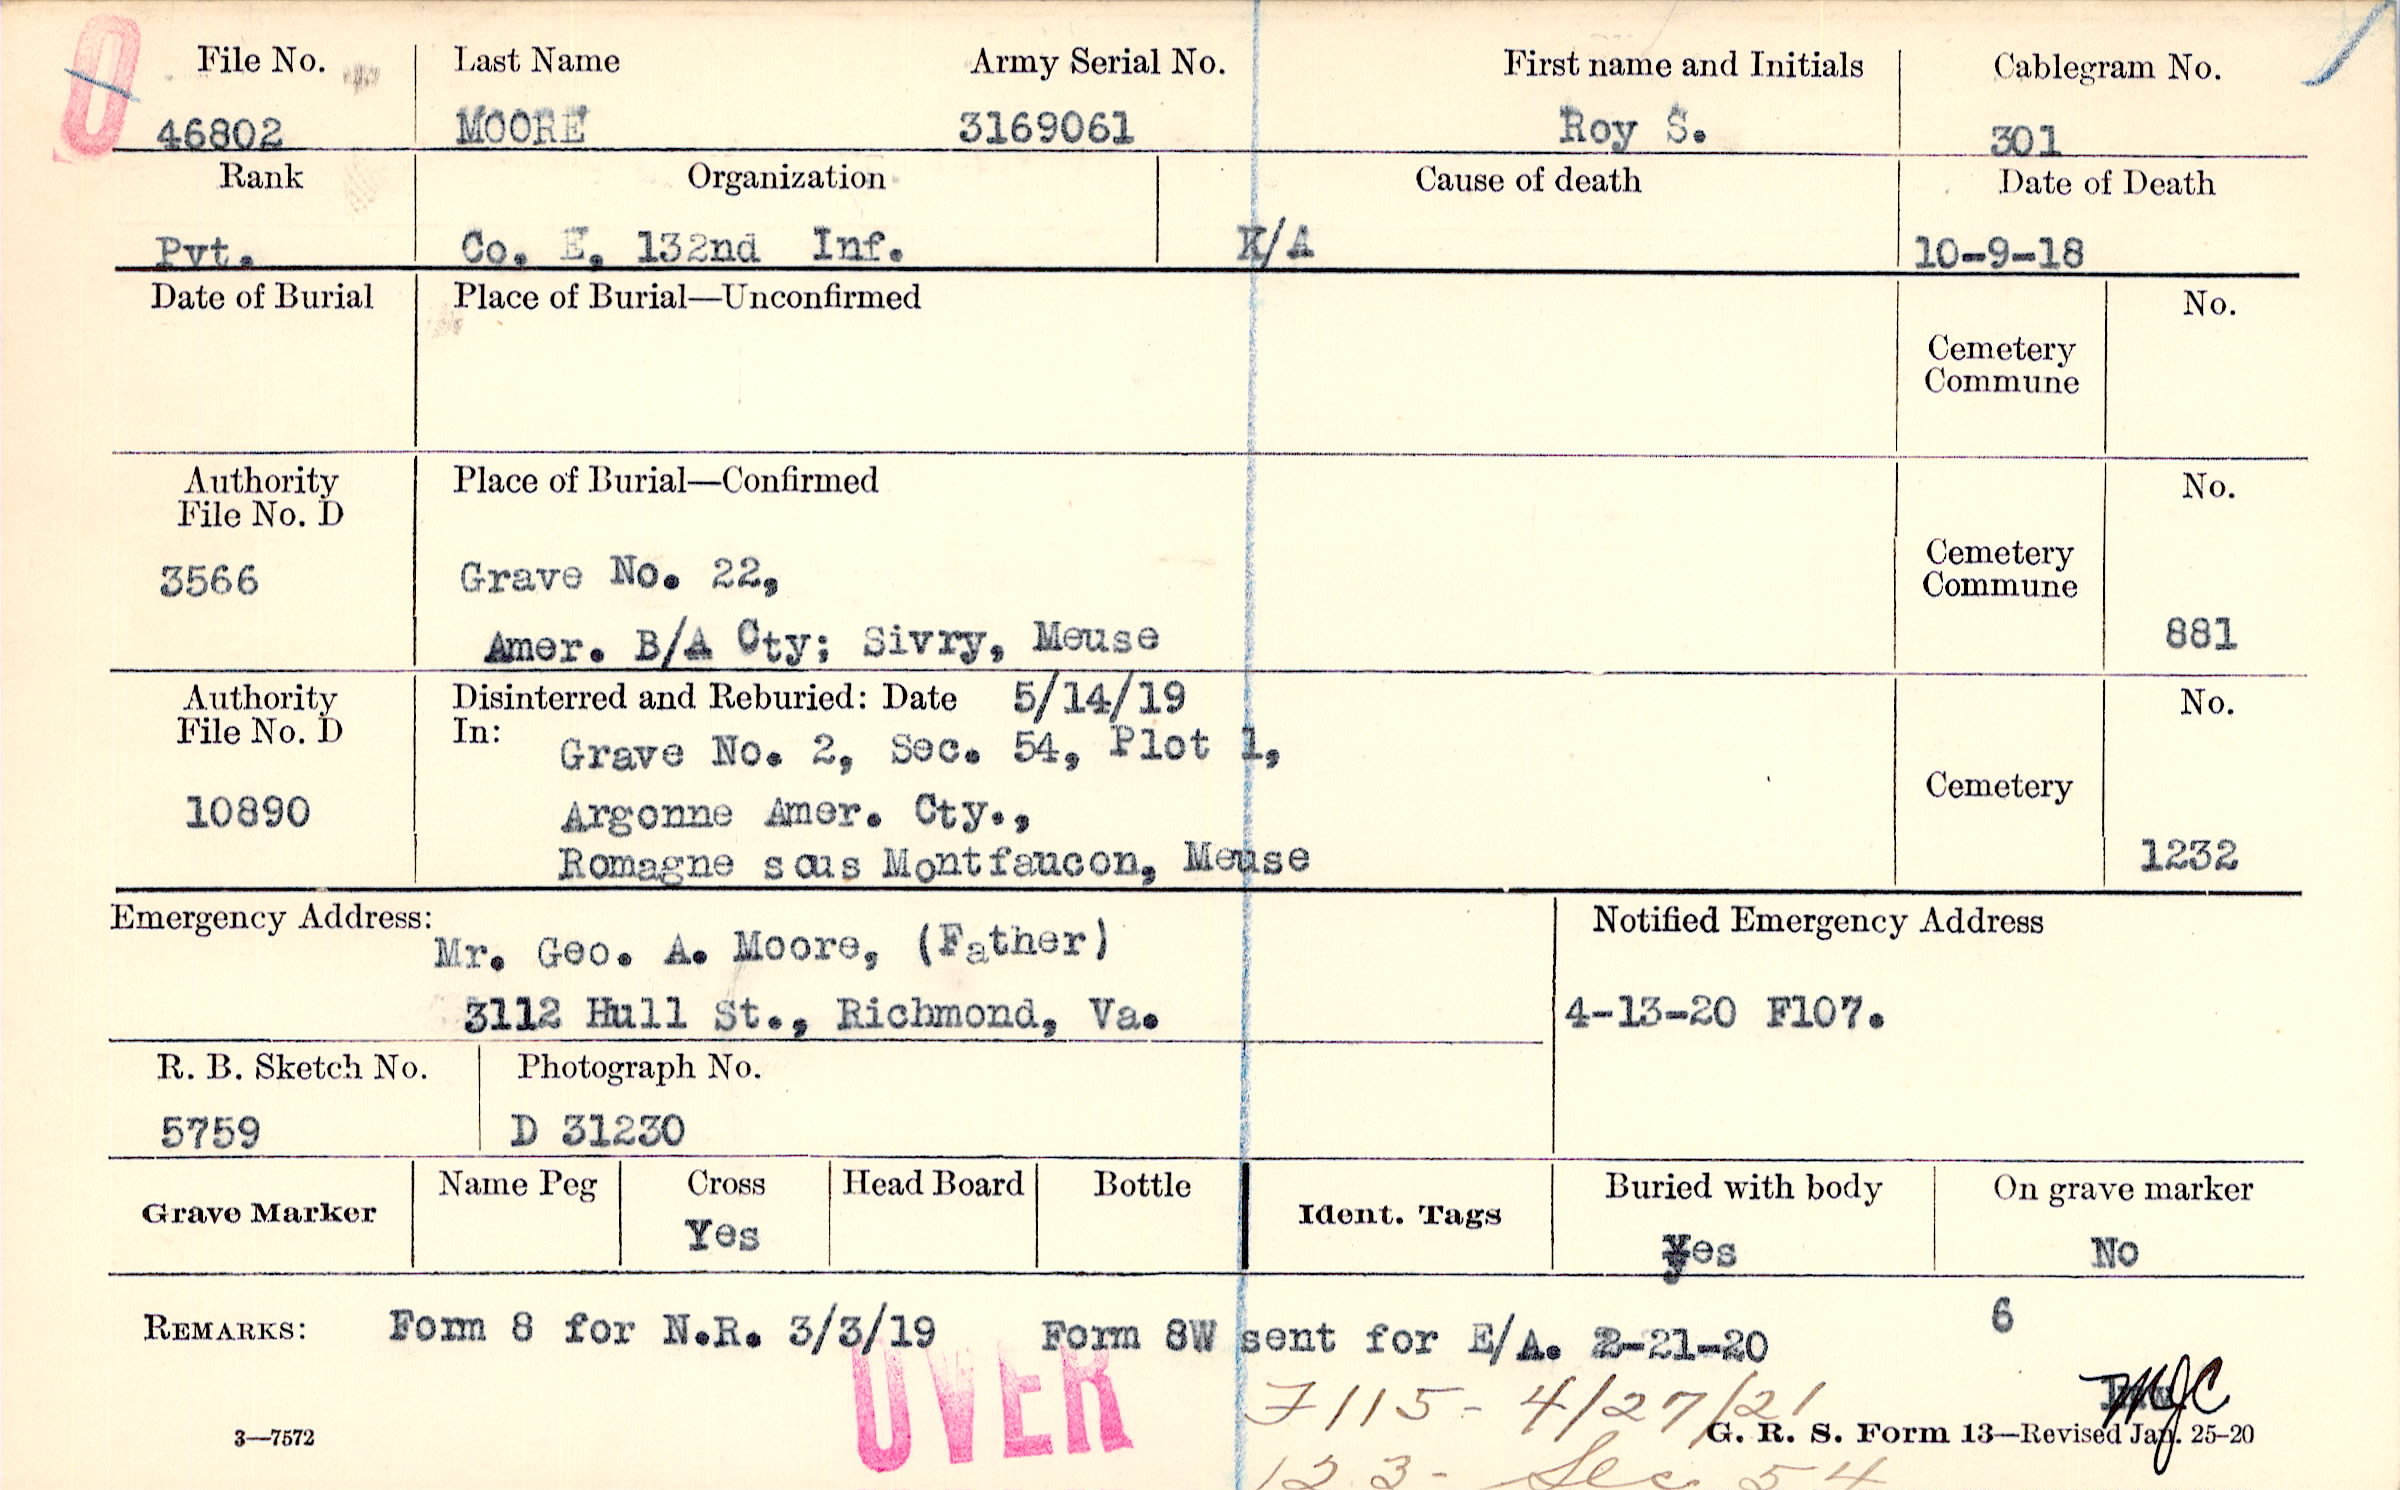 O
File No. Last Name Army Serial No. First name and Initials Cablegram No.
46802 MOORE 3169061 Roy S. 301
Rank Organization Cause of death Date of Death
Pvt. Co. E, 132nd Inf. K/A 10-9-18
Date of Burial Place of Burial—Unconfirmed No.
Cemetery
Commune
Authority Place of Burial—Confirmed No.
File No. D
3566 Grave No. 22, Cemetery
Commune
Amer. B/A Cty; Sivry, Meuse 881
Authority Disinterred and Reburied: Date 5/14/19 No.
File No. D In: Grave No. 2, Sec. 54, Plot 1,
10890 Argonne Amer. Cty., Cemetery
Romagne sous Montfaucon, Meuse 1232
Emergency Address: Notified Emergency Address
Mr. Geo. A. Moore, (Father)
3112 Hull St., Richmond, Va. 4-13-20 F107.
R. B. Sketch No. Photograph No.
5759 D 31230
Grave Marker Name Peg Cross Head Board Bottle Ident. Tags Buried with body On grave marker
Yes Yes No
REMARKS: Form 8 for N.R. 3/3/19 Form 8W sent for E/A. 2-21-20 6
OVER
F115- 4/27/21 MJC
3—7572 G. R. S. Form 13—Revised Jan. 25-20
123- Sec 54